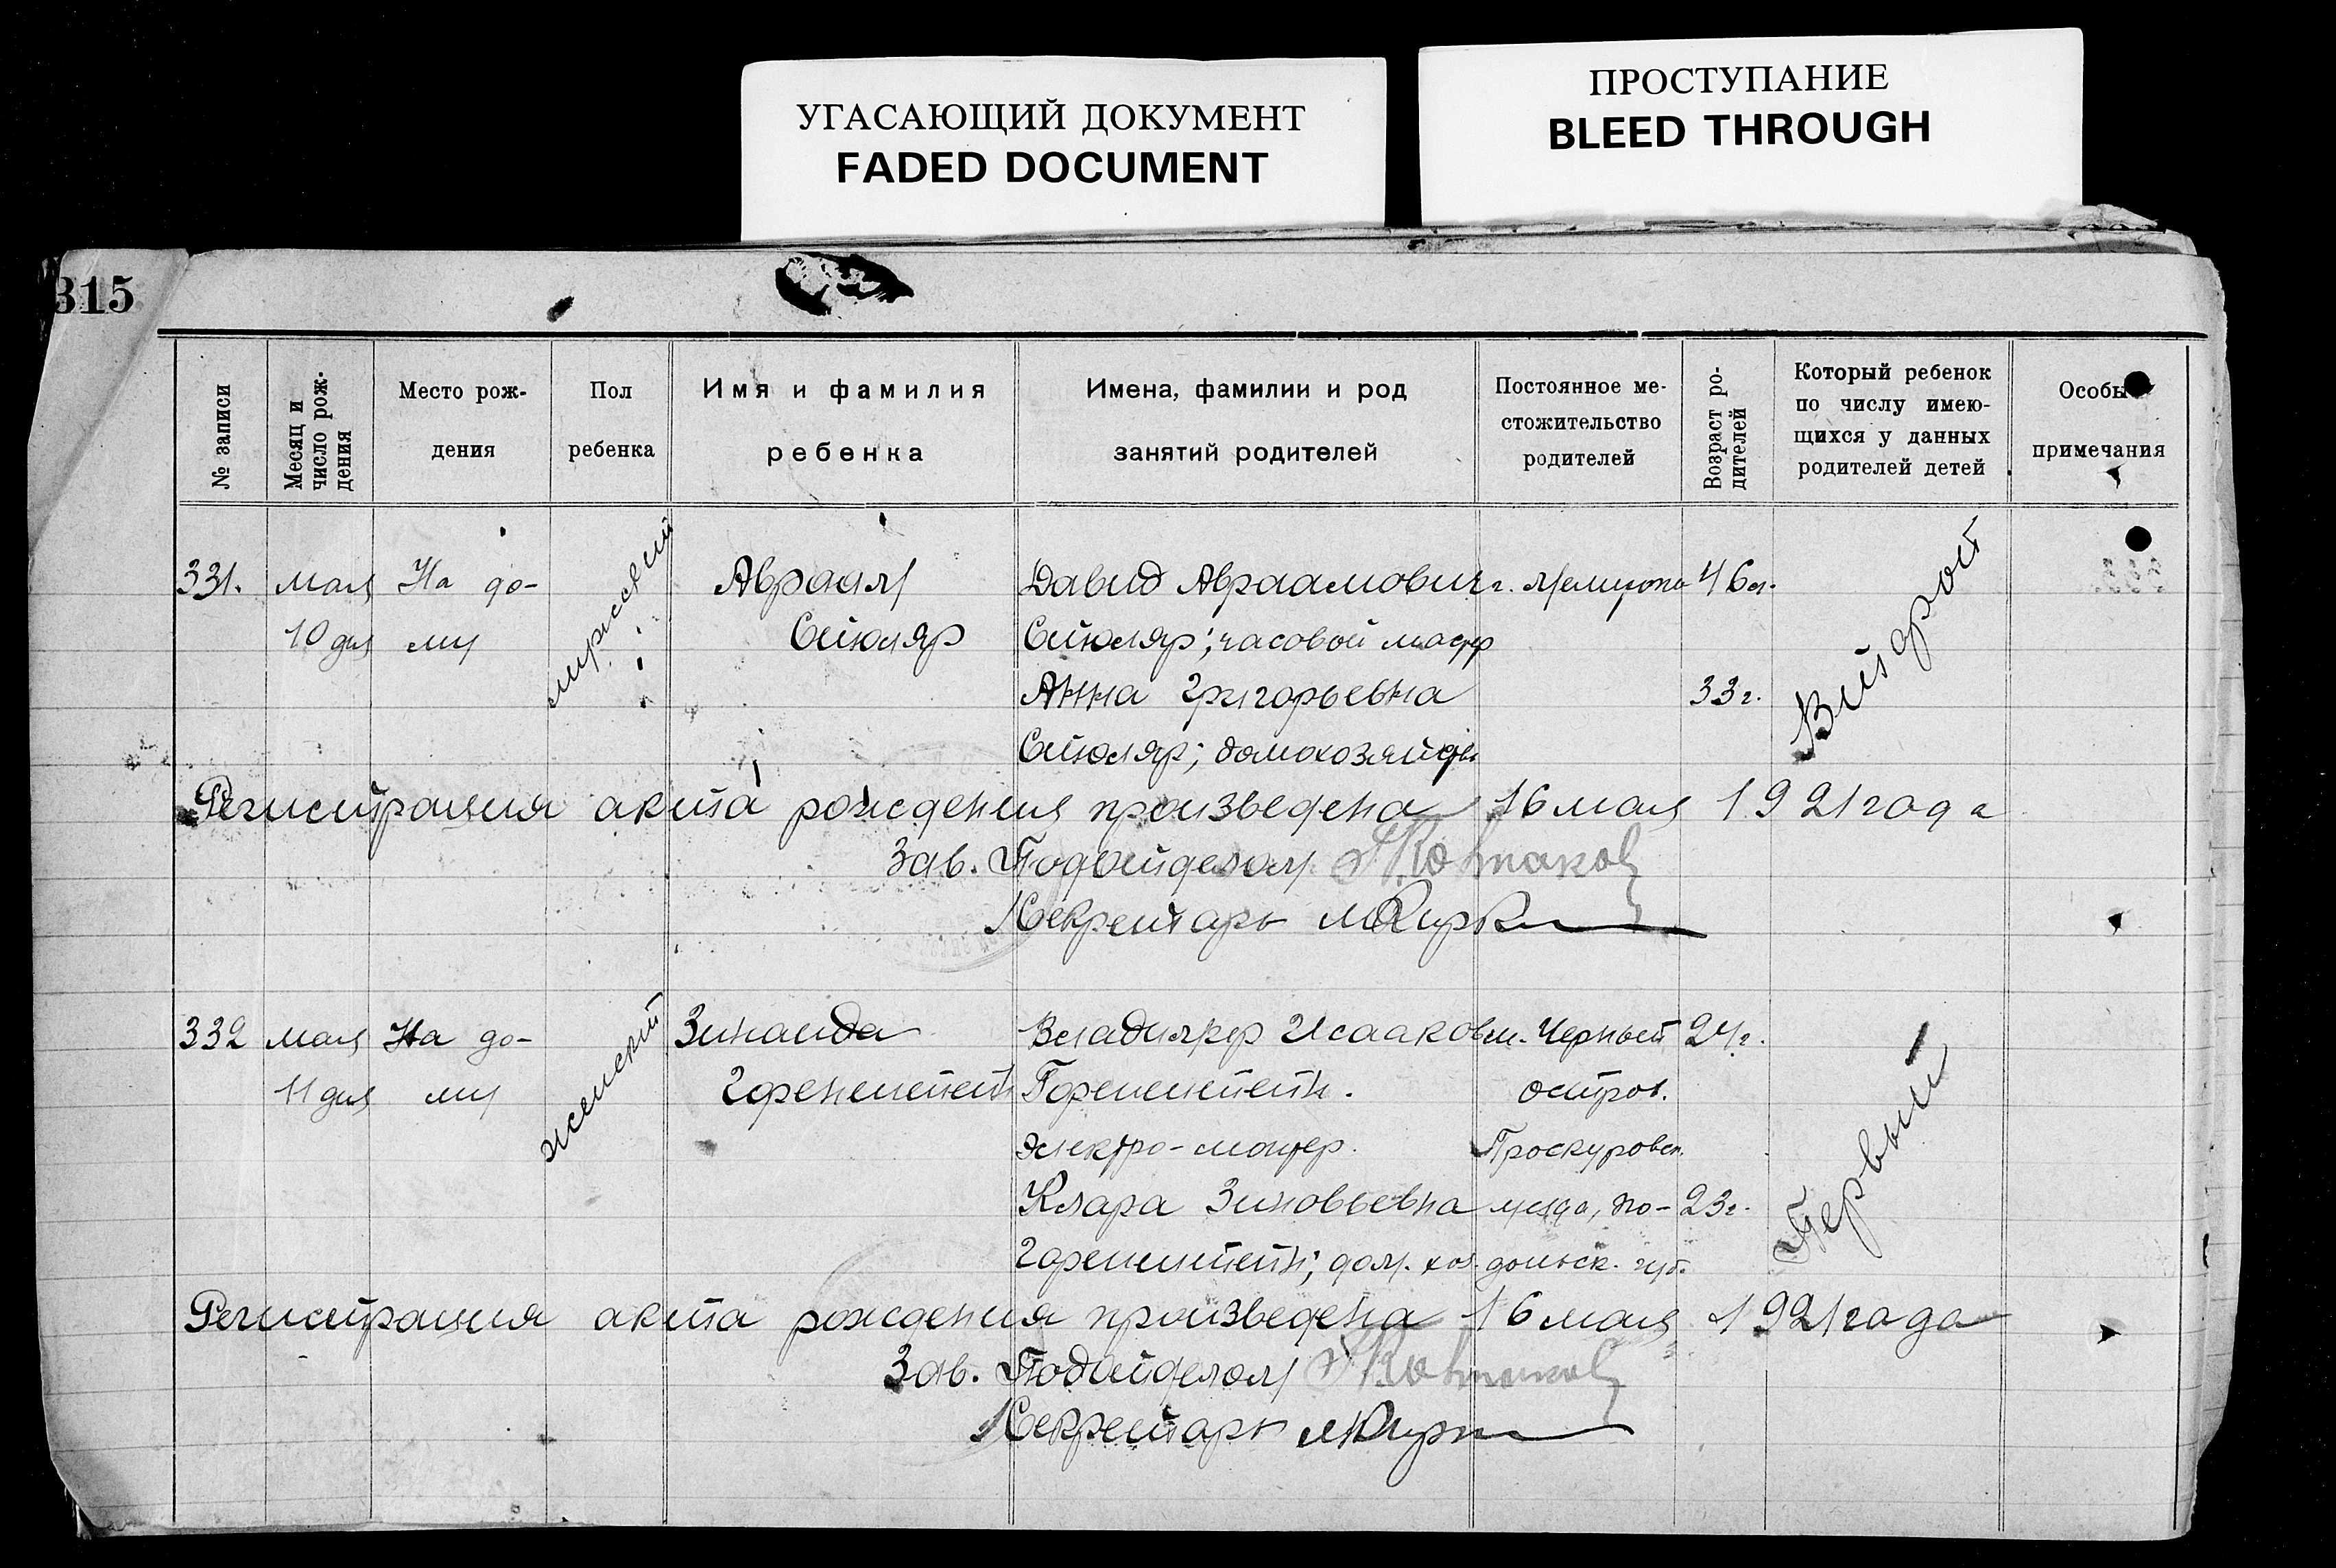 УГАСАЮЩИЙ ДОКУМЕНТ
FADED DOCUMENT
ПРОСТУПАНИЕ
BLEED THROUGH
315
№ записи
Месяц и
число рож-
дения
Место рож-
дения
Пол
ребенка
Имя и фамилия
ребенка
Имена, фамилии и род
занятий родителей
Постоянное ме-
стожительство
родителей
Возраст ро-
дителей
Который ребенок
по числу имею-
щихся у данных
родителей детей
Особы
примечания
331. мая На до- мужской Авраам Давид Авраамович г. Мелитопо 46 л. Второй
10 дня му Столяр Столяр; часовой мастер
Анна Григорьевна 33 г.
Столяр; домохозяйка
Регистрация акта рождения произведена 16 мая 1921 года
Зав. Подотделом
Секретарь
332 мая На до- женский Зинаида Владимир Исаакови. Черный 24 г. Первый
11 дня му Горенштейн Горенштейн. остров.
электро-монтер. Проскуровск.
Клара Зиновьевна уезда, по- 23 г.
Горенштейн; дом. хоз. дольск. губ.
Регистрация акта рождения произведена 16 мая 1921 года
Зав. Подотделом
Секретарь